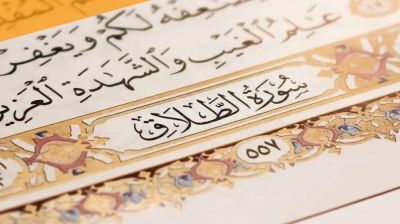 يُضَٰعِفْهُ لَكُمْ وَيَغْفِرْ
عَٰلِمُ ٱلْغَيْبِ وَٱلشَّهَٰدَةِ ٱلْعَزِيزُ
سُورَةُ الطَّلَاقِ
٥٥٧